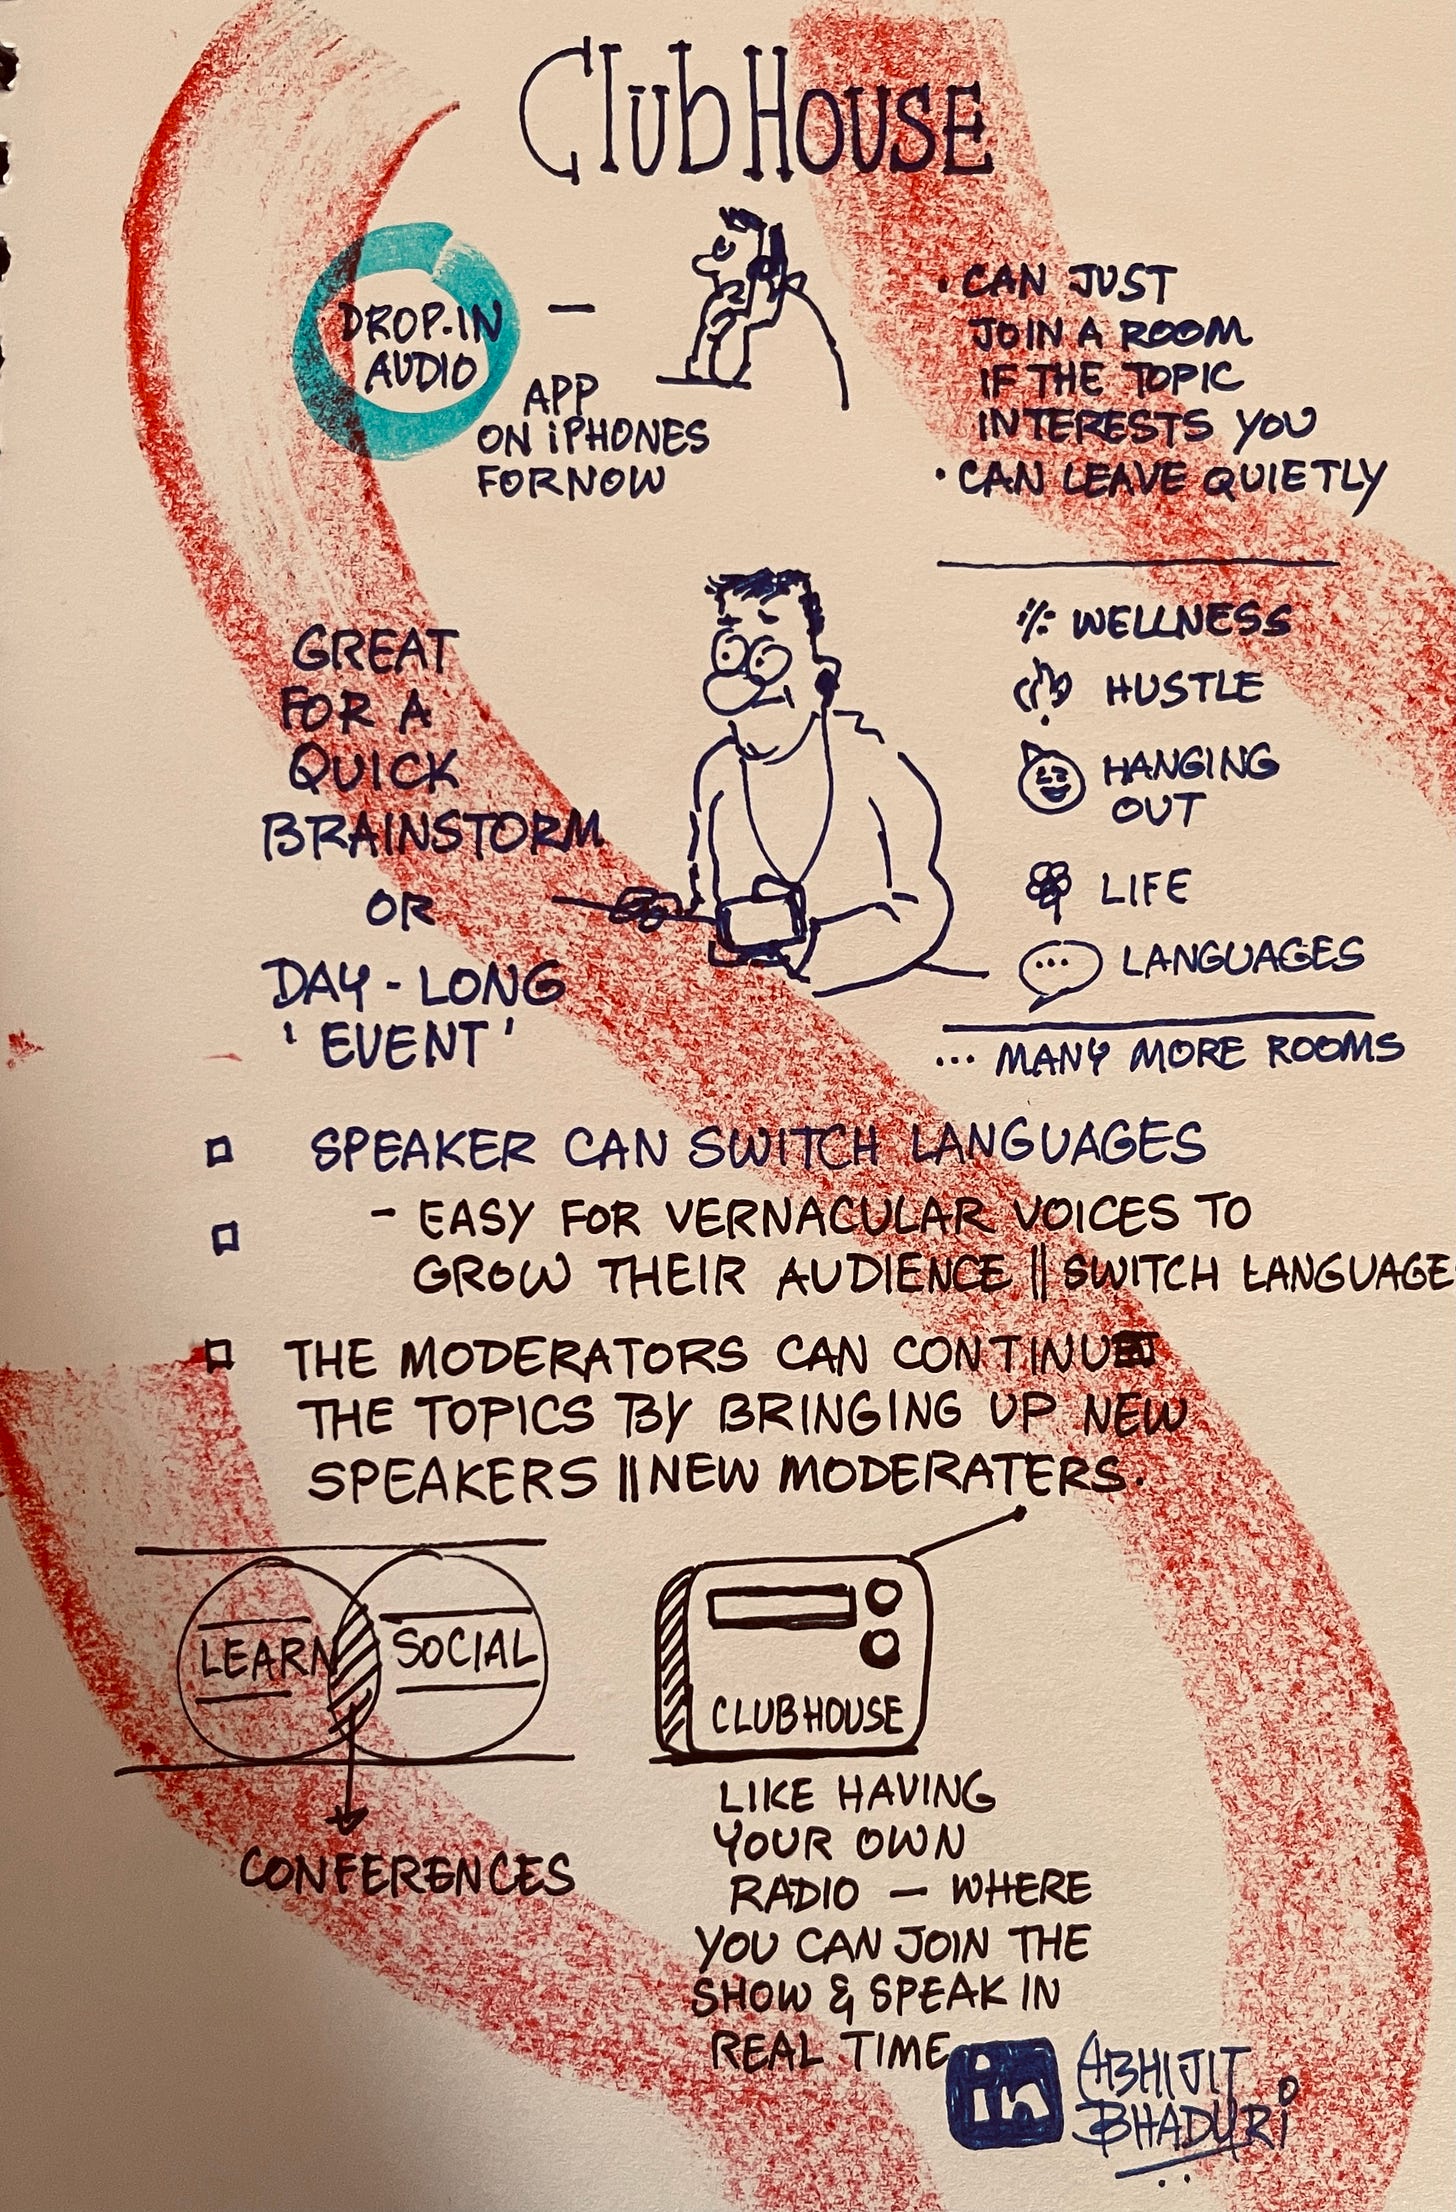 ClubHouse
DROP-IN
AUDIO
—
APP
ON iPHONES
FOR NOW
• CAN JUST
JOIN A ROOM
IF THE TOPIC
INTERESTS YOU
• CAN LEAVE QUIETLY
GREAT
FOR A
QUICK
BRAINSTORM
OR
DAY - LONG
' EVENT '
WELLNESS
HUSTLE
HANGING
OUT
LIFE
LANGUAGES
... MANY MORE ROOMS
SPEAKER CAN SWITCH LANGUAGES
- EASY FOR VERNACULAR VOICES TO
GROW THEIR AUDIENCE || SWITCH LANGUAGE
THE MODERATORS CAN CONTINUE
THE TOPICS BY BRINGING UP NEW
SPEAKERS || NEW MODERATERS.
LEARN
SOCIAL
CONFERENCES
CLUBHOUSE
LIKE HAVING
YOUR OWN
RADIO — WHERE
YOU CAN JOIN THE
SHOW & SPEAK IN
REAL TIME
in
ABHIJIT
BHADURI